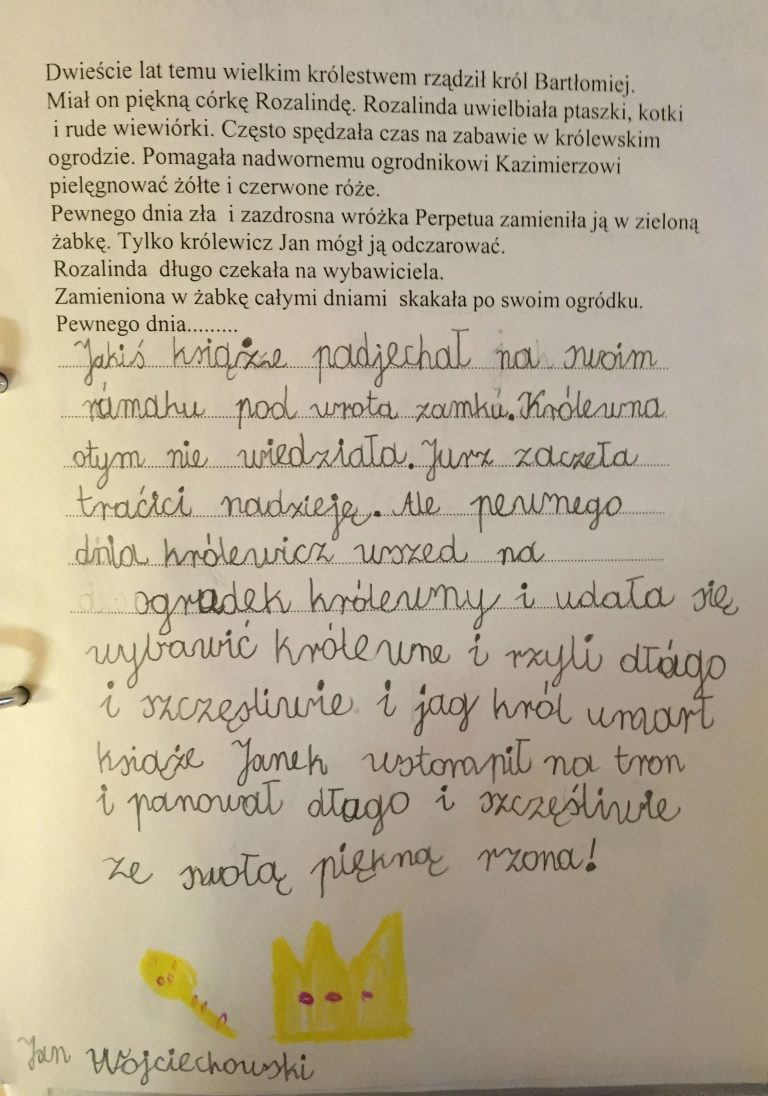 Dwieście lat temu wielkim królestwem rządził król Bartłomiej.
Miał on piękną córkę Rozalindę. Rozalinda uwielbiała ptaszki, kotki
i rude wiewiórki. Często spędzała czas na zabawie w królewskim
ogrodzie. Pomagała nadwornemu ogrodnikowi Kazimierzowi
pielęgnować żółte i czerwone róże.
Pewnego dnia zła i zazdrosna wróżka Perpetua zamieniła ją w zieloną
żabkę. Tylko królewicz Jan mógł ją odczarować.
Rozalinda długo czekała na wybawiciela.
Zamieniona w żabkę całymi dniami skakała po swoim ogródku.
Pewnego dnia.........
Jakiś książże padjechał na swoim
rámaku pod wrota zamkú. Królewna
otym nie wiedziała. Jurz zaczeła
traćici nadzieję. Ale pewnego
dnia królewicz wszed na
ogradek królewny i udała się
wybawić królewne i rzyli dłágo
i szczęsliwie i jag król umarł
książe Janek wstorapił na tron
i panował dłago i szczęśliwie
ze swołą piękną rzona!
Jan Wójciechowski